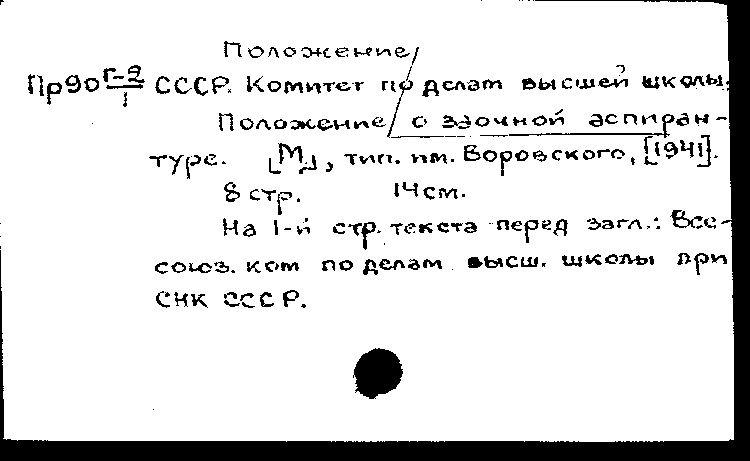 Положение
Пр90 Г-2/1 СССР. Комитет по делам высшей школы.
Положение о заочной аспиран-
туре. [М.], тип. им. Воровского, [1941].
8 стр. 14 см.
На 1-й стр. текста перед загл.: Все-
союз. ком по делам высш. школы при
СНК СССР.